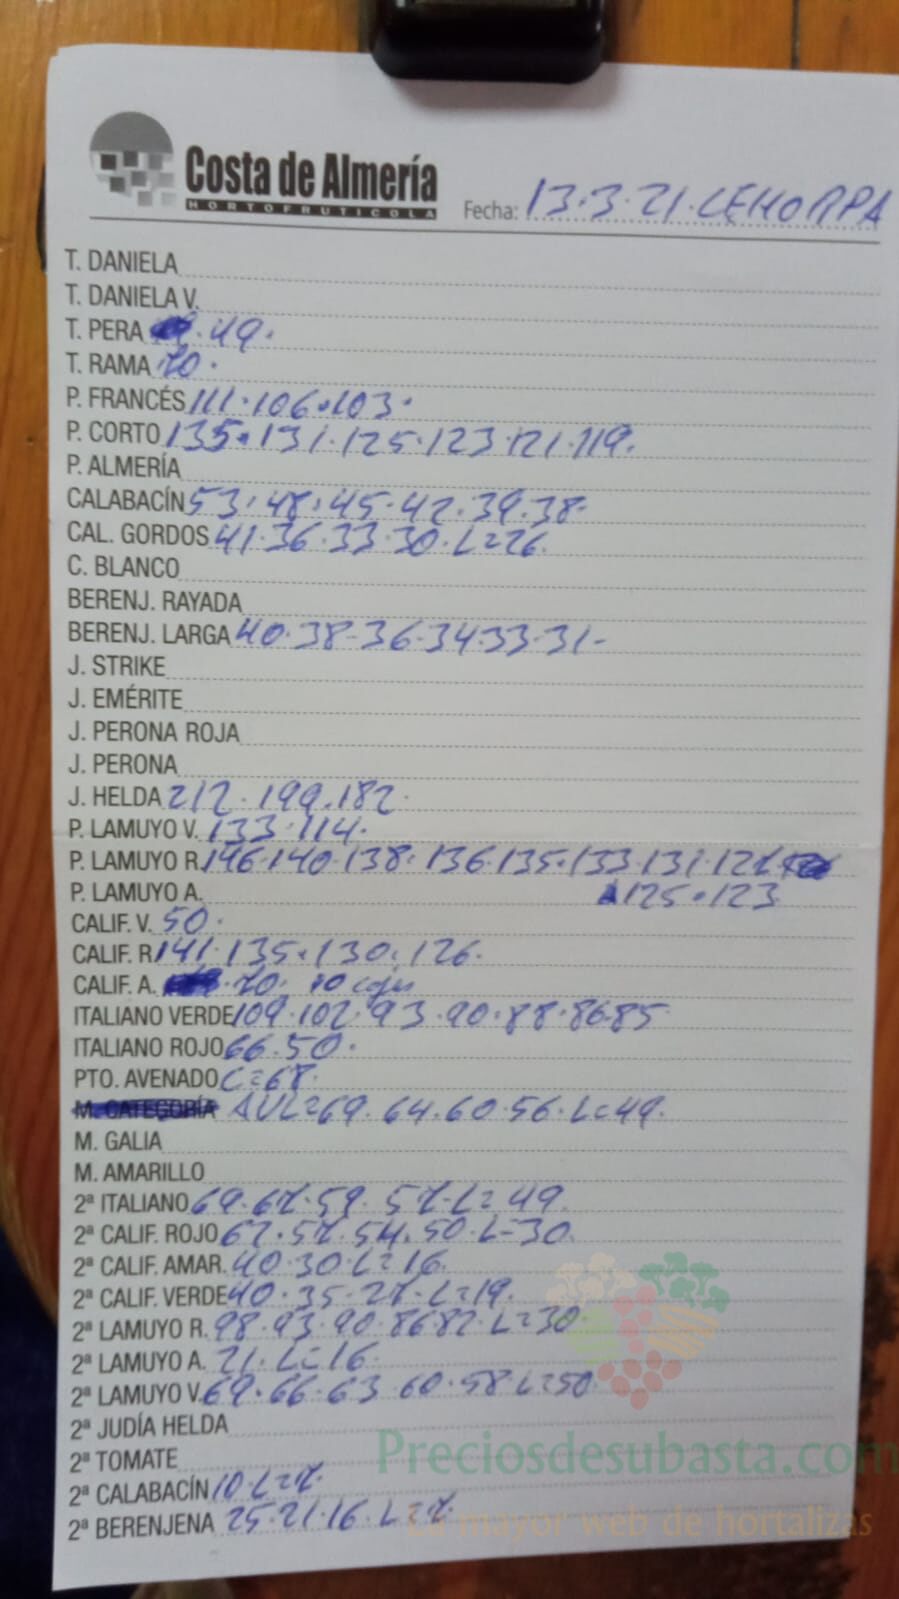 Costa de Almería
HORTOFRUTICOLA
Fecha: 13.3.21. CEHORPA
T. DANIELA
T. DANIELA V.
T. PERA 49.
T. RAMA 70.
P. FRANCÉS 111.106.103.
P. CORTO 135.131.125.123.121.119.
P. ALMERÍA
CALABACÍN 53.48.45.42.39.38.
CAL. GORDOS 41.36.33.30.L=26.
C. BLANCO
BERENJ. RAYADA
BERENJ. LARGA 40.38.36.34.33.31.
J. STRIKE
J. EMÉRITE
J. PERONA ROJA
J. PERONA
J. HELDA 212.199.182.
P. LAMUYO V. 133.114.
P. LAMUYO R. 146.140.138.136.135.133.131.127
P. LAMUYO A. 125.123
CALIF. V. 50.
CALIF. R 141.135.130.126.
CALIF. A. 70. 10 cajas
ITALIANO VERDE 109.102.93.90.88.86.85
ITALIANO ROJO 66.50.
PTO. AVENADO L=68.
M. CATEGORÍA AVL=69.64.60.56.L=49.
M. GALIA
M. AMARILLO
2ª ITALIANO 69.67.59.57.L=49.
2ª CALIF. ROJO 62.57.54.50.L=30.
2ª CALIF. AMAR. 40.30.L=16.
2ª CALIF. VERDE 40.35.27.L=19.
2ª LAMUYO R. 98.93.90.86.82.L=30
2ª LAMUYO A. 21.L=16.
2ª LAMUYO V. 69.66.63.60.58.L=50
2ª JUDÍA HELDA
2ª TOMATE
2ª CALABACÍN 10.L=7.
2ª BERENJENA 25.21.16.L=7.
Preciosdesubasta.com
La mayor web de hortalizas